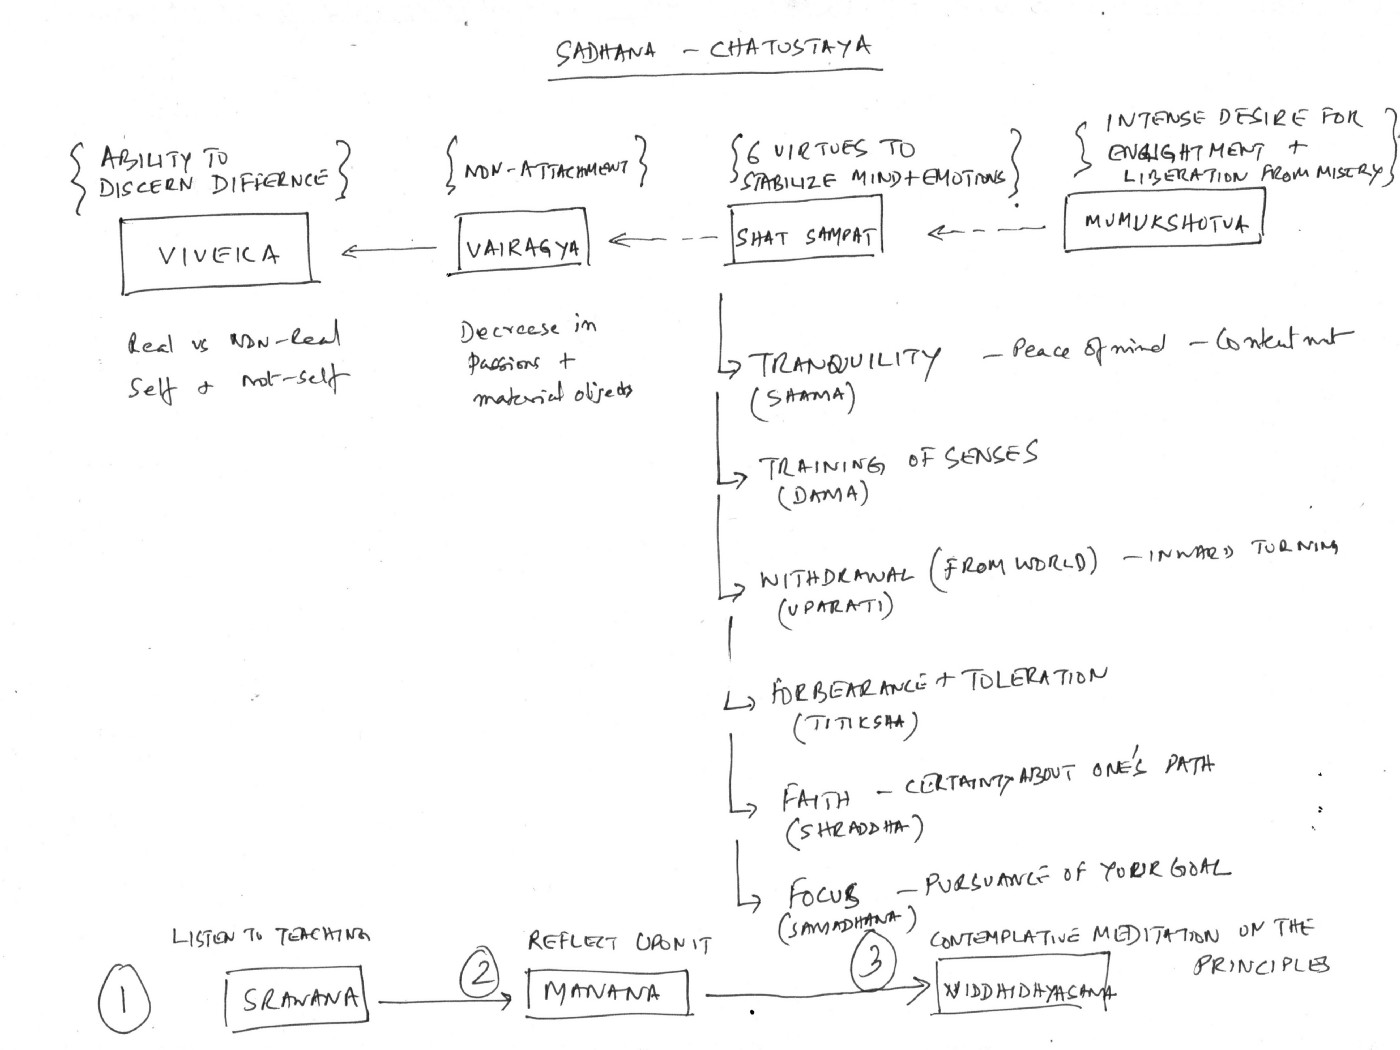 SADHANA - CHATUSTAYA
{ ABILITY TO
DISCERN DIFFERNCE }
{ NON-ATTACHMENT }
{ 6 VIRTUES TO
STABILIZE MIND + EMOTIONS }
{ INTENSE DESIRE FOR
ENGIGHTMENT +
LIBERATION FROM MISERY }
VIVEKA
VAIRAGYA
SHAT SAMPAT
MUMUKSHOTVA
Real vs NON-Real
Self & not-self
Decrease in
passions +
material objects
TRANQUILITY - Peace of mind - Contentmnt
(SHAMA)
TRAINING OF SENSES
(DAMA)
WITHDRAWAL (FROM WORLD) - INWARD TURNING
(UPARATI)
FORBEARANCE + TOLERATION
(TITIKSHA)
FAITH - CERTAINTY ABOUT ONE'S PATH
(SHRADDHA)
FOCUS - PURSUANCE OF YOUR GOAL
(SAMADHANA)
LISTEN TO TEACHING
REFLECT UPON IT
CONTEMPLATIVE MEDITATION ON THE
PRINCIPLES
1
SRAVANA
2
MANANA
3
NIDDHIDHYASANA